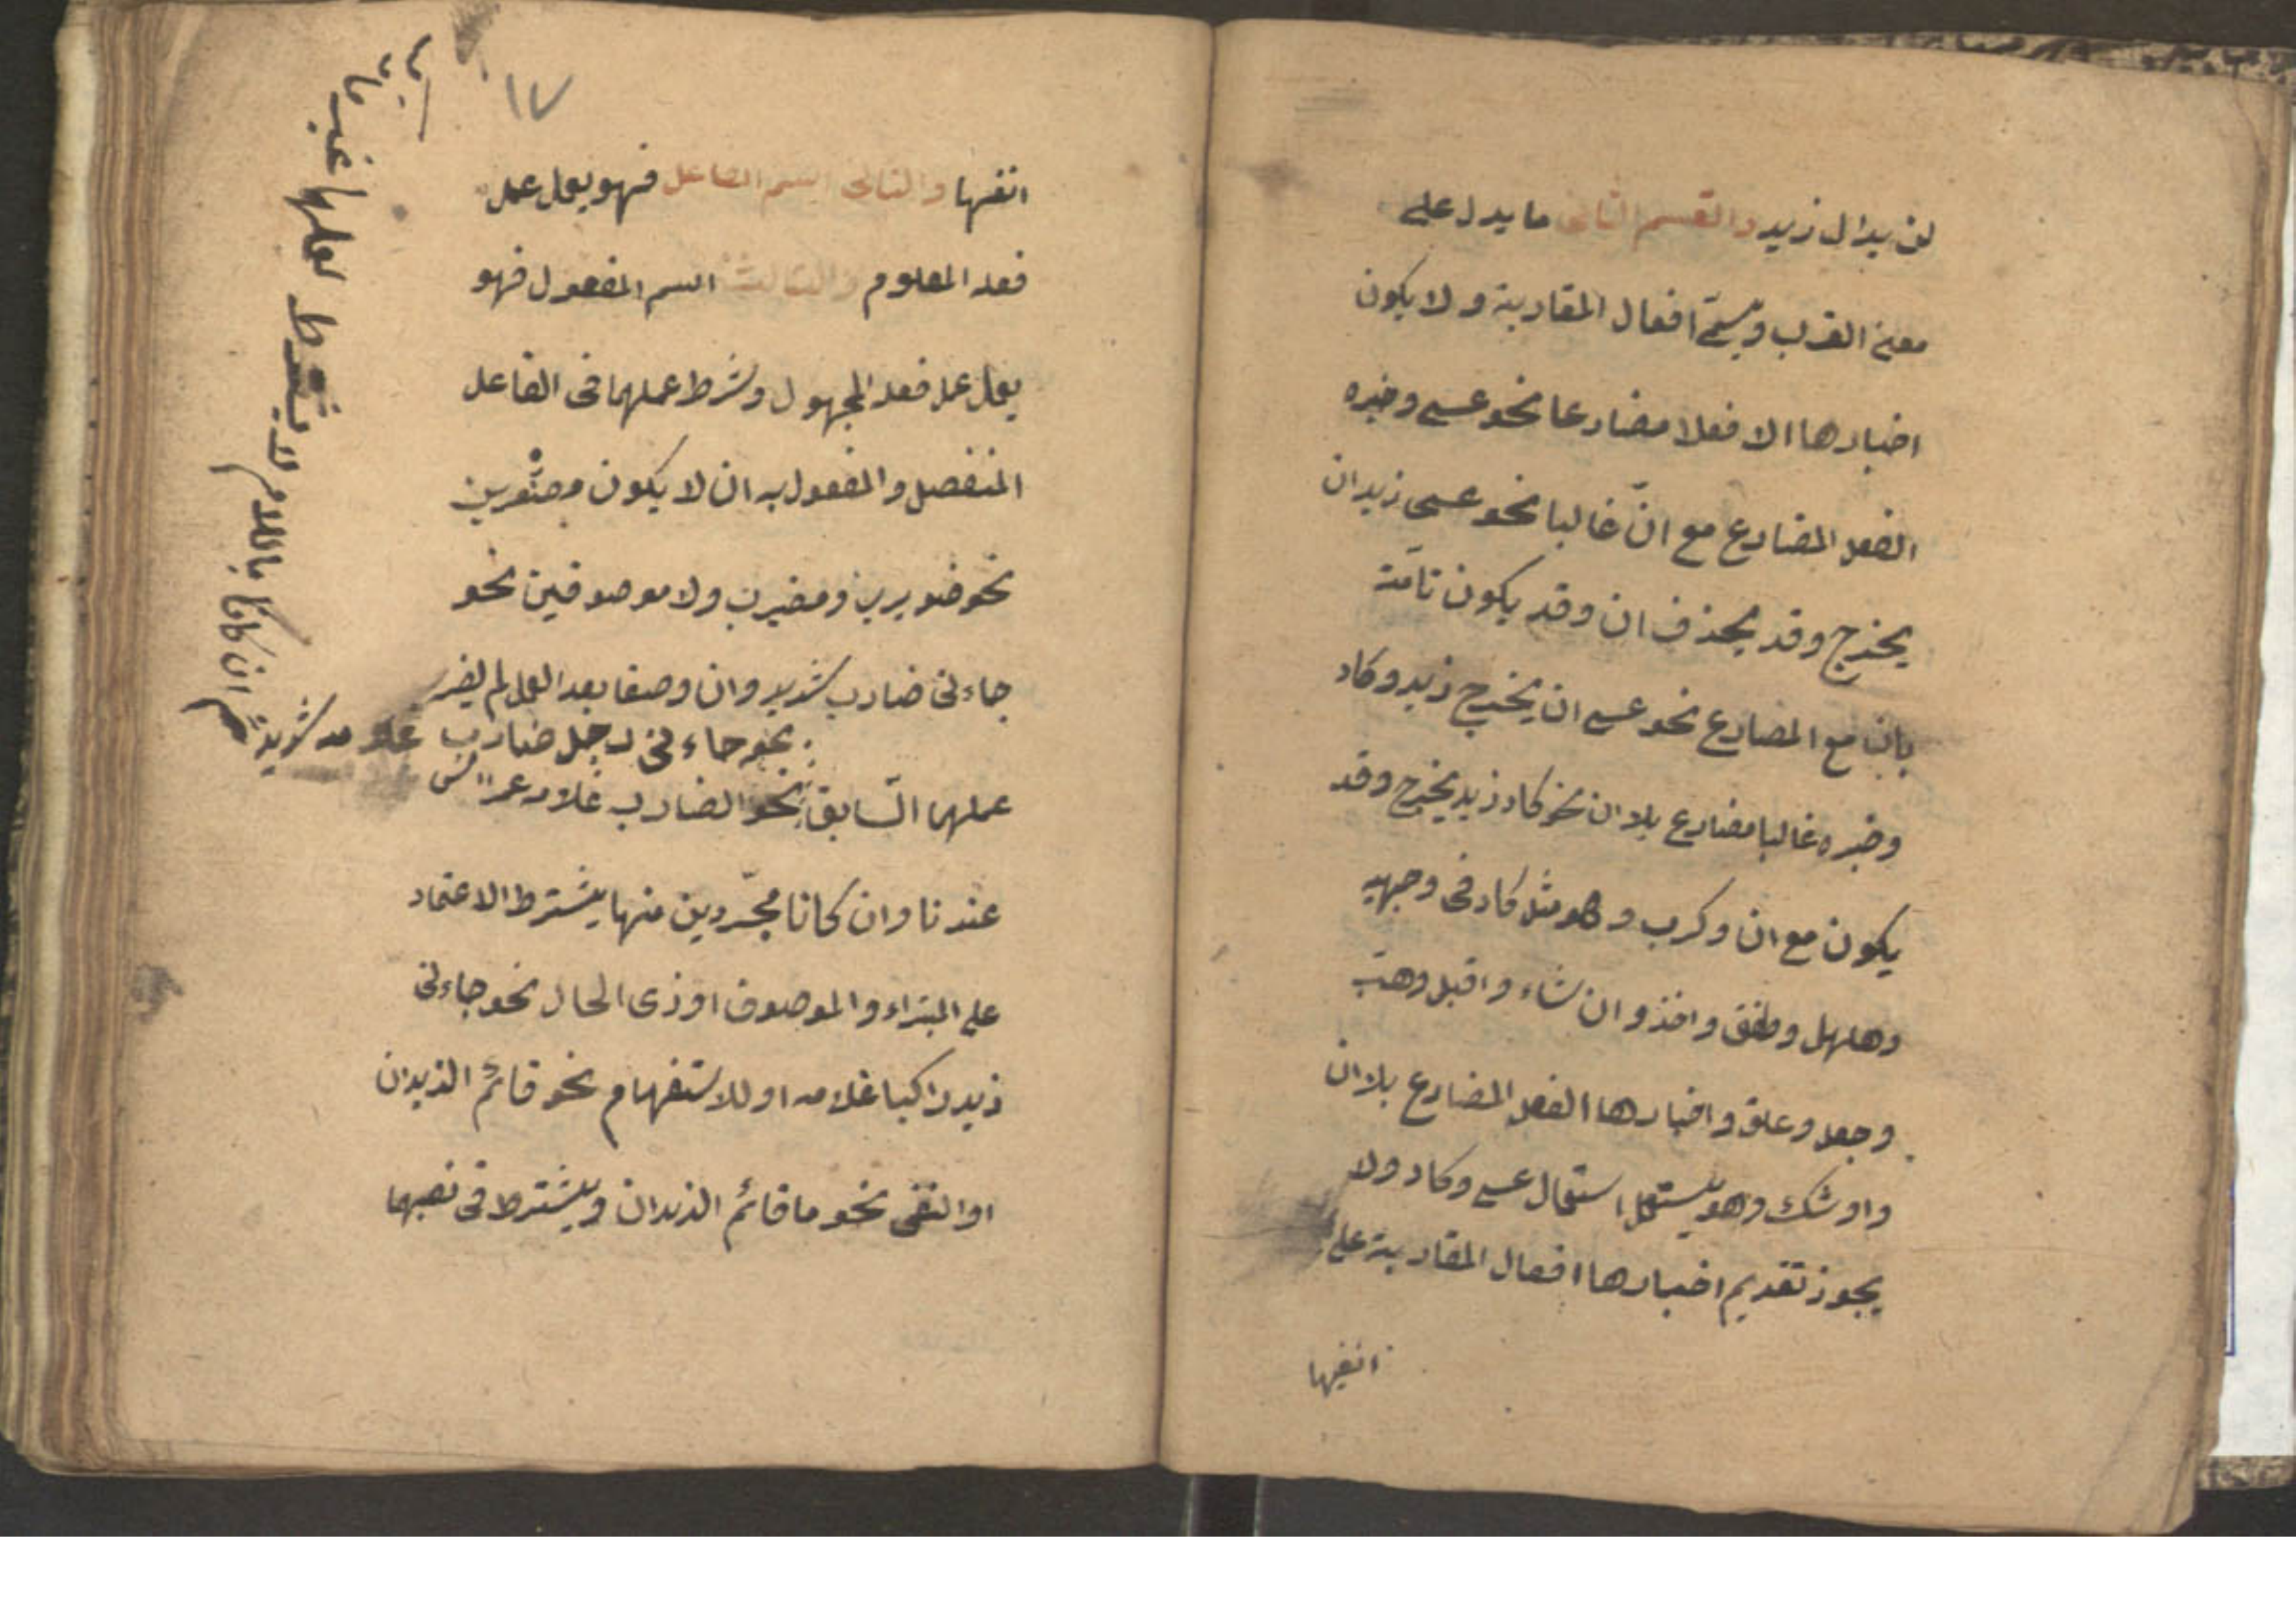 لن يدال زيد والقسم الثانى ما يدل على
معنى القرب ويسمّى افعال المقاربة ولا يكون
اخبارها الا فعلا مضارعا نحو عسى وخبره
الفعل المضارع مع انّ غالبا نحو عسى زيد ان
يخرج وقد يحذف ان وقد يكون تامّة
بان مع المضارع نحو عسى ان يخرج زيد وكاد
وخبره غالبا مضارع بلا ان نحو كاد زيد يخرج وقد
يكون مع ان وكرب وهو مثل كاد فى وجهيه
وهلهل وطفق واخذ وانشاء واقبل وهبّ
وجعل وعلق واخبارها الفعل المضارع بلا ان
واوشك وهو يستعمل استعمال عسى وكاد ولا
يجوز تقديم اخبارها افعال المقاربة على
انفسها
١٧
انفسها والثانى اسم الفاعل فهو يعمل عمل
فعله المعلوم والثالث اسم المفعول فهو
يعمل عمل فعله المجهول وشرط عملهما فى الفاعل
المنفصل والمفعول به ان لا يكون مصغّرين
نحو ضويرب ومضيرب ولا موصوفين نحو
جاءنى ضارب شديد وان وصفا بعد العمل لم يضر
نحو جاءنى رجل ضارب غلامه شديد
عملهما السّابق نحو الضارب غلامه عمرا
عندنا وان كانا مجرّدين منها يشترط الاعتماد
على المبتداء والموصوف او ذى الحال نحو جاءنى
زيد راكبا غلامه او للاستفهام نحو قائم الزيدان
او النفى نحو ما قائم الزيدان ويشترط فى نصبهما
ثم ان كانا باللام لا يشترط لعملهما غير ما